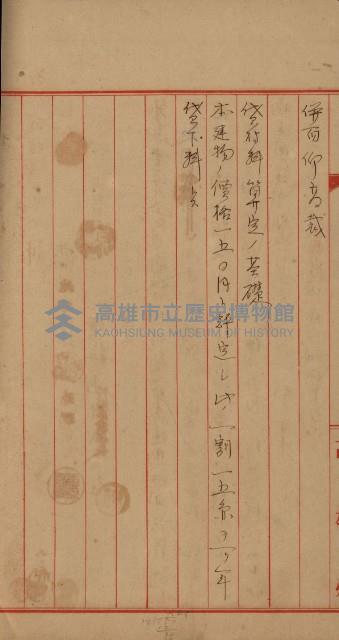 併而仰高裁
貸付料算定ノ基礎
本建物ノ價格一五〇円ト評定シ此ノ一割一五円ヲ一ケ年
貸下料トス
高雄市立歷史博物館
KAOHSIUNG MUSEUM OF HISTORY